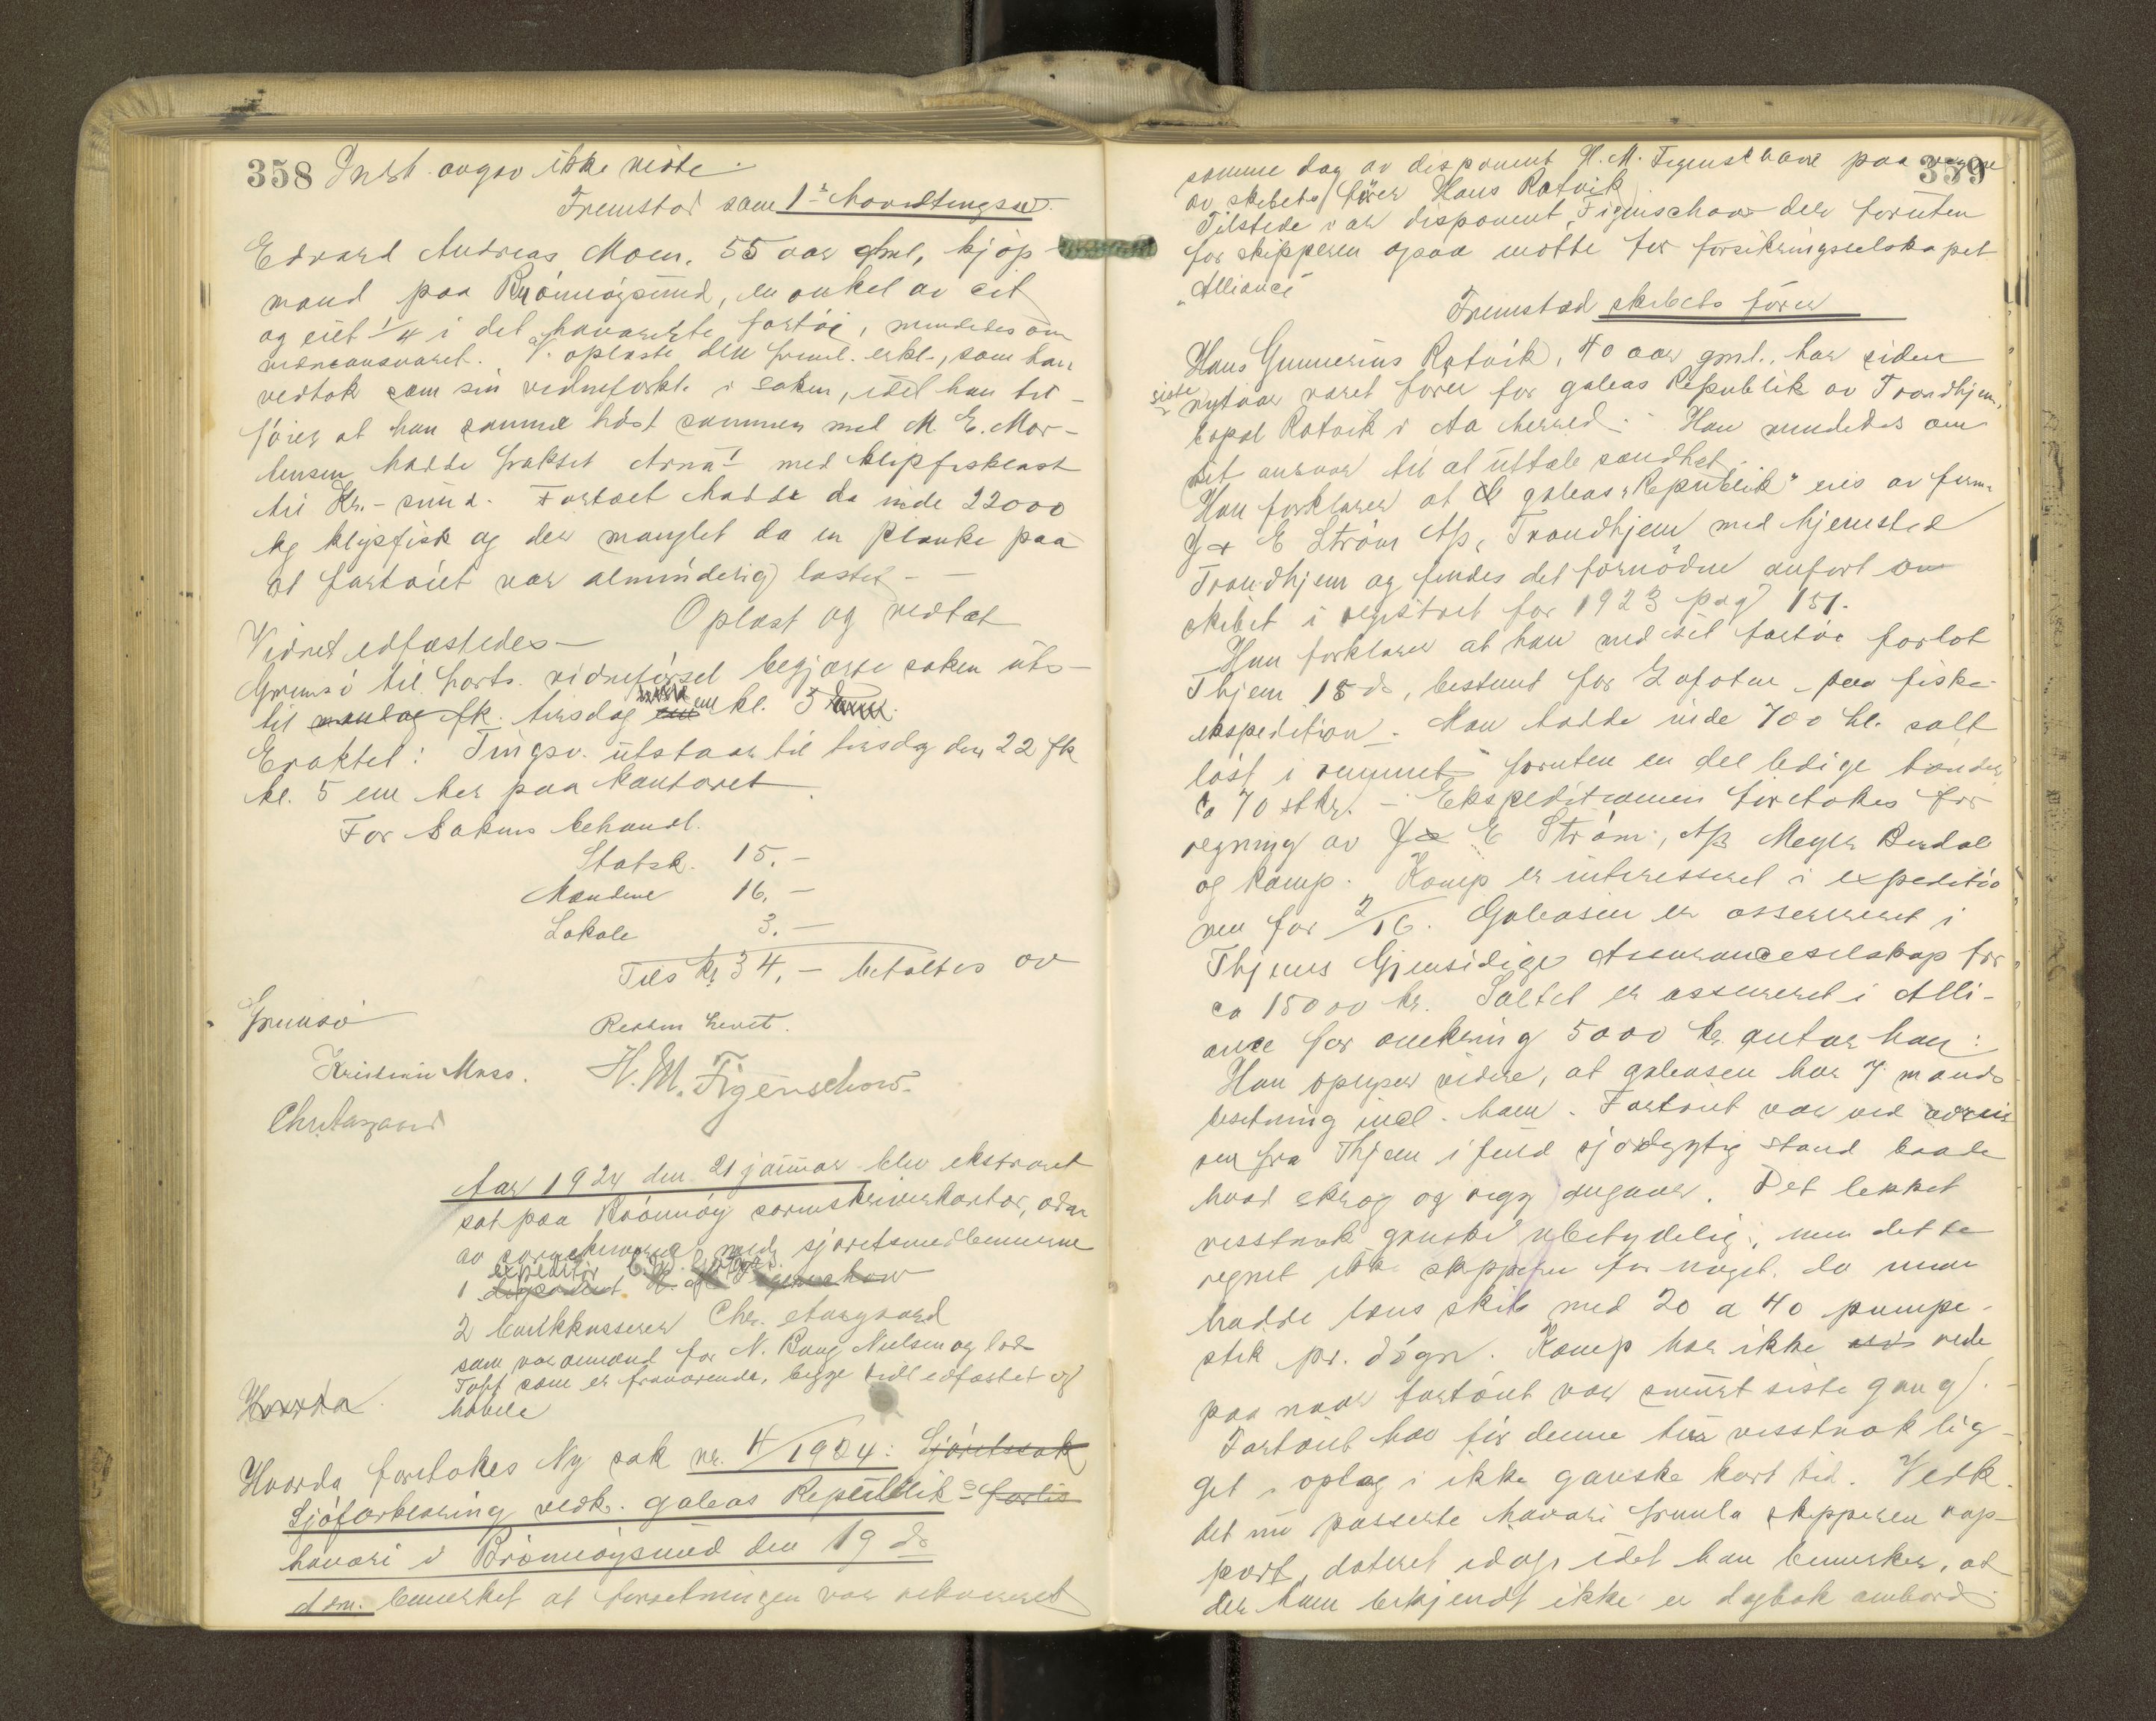 358 Intet angav ikke viste.
Fremstod som 1ste hovedtingsv.
Edvard Andreas Moen, 55 aar gml, kjøp-
mand paa Brønnøysund, en onkel av eit
og eiet 1/4 i det havarerte fartøi, mindedes om
vidneansvaret. V. oplæste den freml. erkl., som han
vedtok som sin vidneforkl. i saken, idet han til-
føier at han samme høst sammen med M. E. Mor-
tensen hadde fraktet Arna I med klipfisklast
til Kr.-sund. Fartøiet hadde da inde 22000
kg klipfisk og der manglet da en planke paa
at fartøiet var almindelig lastet - -
Oplæst og vedtat
Vidnet edfæstedes -
Grunsø til forts. vidneførsel begjærte saken uts-
til mandag fk. tirsdag em kl. 5
Eraktet: Tingsv. utstaar til tirsdag den 22 fk
kl. 5 em her paa kontoret.
For sakens behandl.
Statsk. 15.-
Mændene 16.-
Lokale 3.-
Tils kr 34,- betaltes av
Grunsø
Retten hevet.
H. M. Figenschow.
Aar 1924 den 21 januar blev ekstraret
sat paa Brønnøy sorenskriverkontor, adm
av sorenskriveren med sjøretsmedlemmerne
expeditør
1 disponent H. M. Figenschow
2 bankkasserer Chr. Aasgaard
som varamænd for N. Baug Nielsen og lods
Toft som er fraværende, begge tidl edfæstet og
habile
Hvorda
Hvorda foretokes Ny sak nr. 4/1924: Sjøretssak
Sjøforklaring vedk. galeas Republik's forlis
havari i Brønnøysund den 19 ds
dom. bemerket at forsetningen var rekvireret
359
samme dag av disponent H. M. Figenschow paa vegne
av skibets fører Hans Ratvik
Tilstede var disponent Figenschow der foruten
for skipperen ogsaa møtte for forsikringsselskapet
"Alliance
Fremstod skibets fører
Hans Gunnerius Ratvik, 40 aar gml., har siden
siste nytaar været fører for galeas Republik av Trondhjem,
bopæl Ratvik i Aa herred. Han mindedes om
sit ansvar til at uttale sandhet.
Han forklarer at galeas "Republik" eies av firma
J & E Strøm A/S, Trondhjem med hjemsted
Trondhjem og findes det fornødne anført om
skibet i registret for 1923 pag 151.
Han forklarer at han med sit fartøi forlot
Thjem 15 ds, bestemt for Lofoten paa fiske-
ekspedition. Man hadde inde 700 hl. salt
løst i rummet foruten en del ledige tønder
ca 70 stkr. - Ekspeditionen foretokes for
regning av J & E Strøm, A/S Meyer Berdal
og komp. Komp er interesseret i expeditio
nen for 2/16. Galeasen er assureret i
Thjems Gjensidige Assuranceselskap for
ca 15000 kr. Saltet er assureret i Alli-
ance for omkring 5000 kr. antar han:
Han opgiver videre, at galeasen har 7 mands
besetning incl. ham. Fartøiet var ved avrei
sen fra Thjem i fuld sjødygtig stand baade
hvad skrog og rigg angaar. Det lekket
visstnok ganske ubetydelig, men dette
regnet ikke skipperen for noget, da man
hadde læns skib med 20 a 40 pumpe-
slik pr. døgn. Komp har ikke rede
paa naar fartøiet var smurt siste gang.
Fartøiet har før denne tur visstnok lig-
get i oplag i ikke ganske kort tid. Vedk.
det nu passerte havari fremla skipperen rap-
port, dateret idag idet han bemerker, at
der ham bekjendt ikke er dagbok ombord.